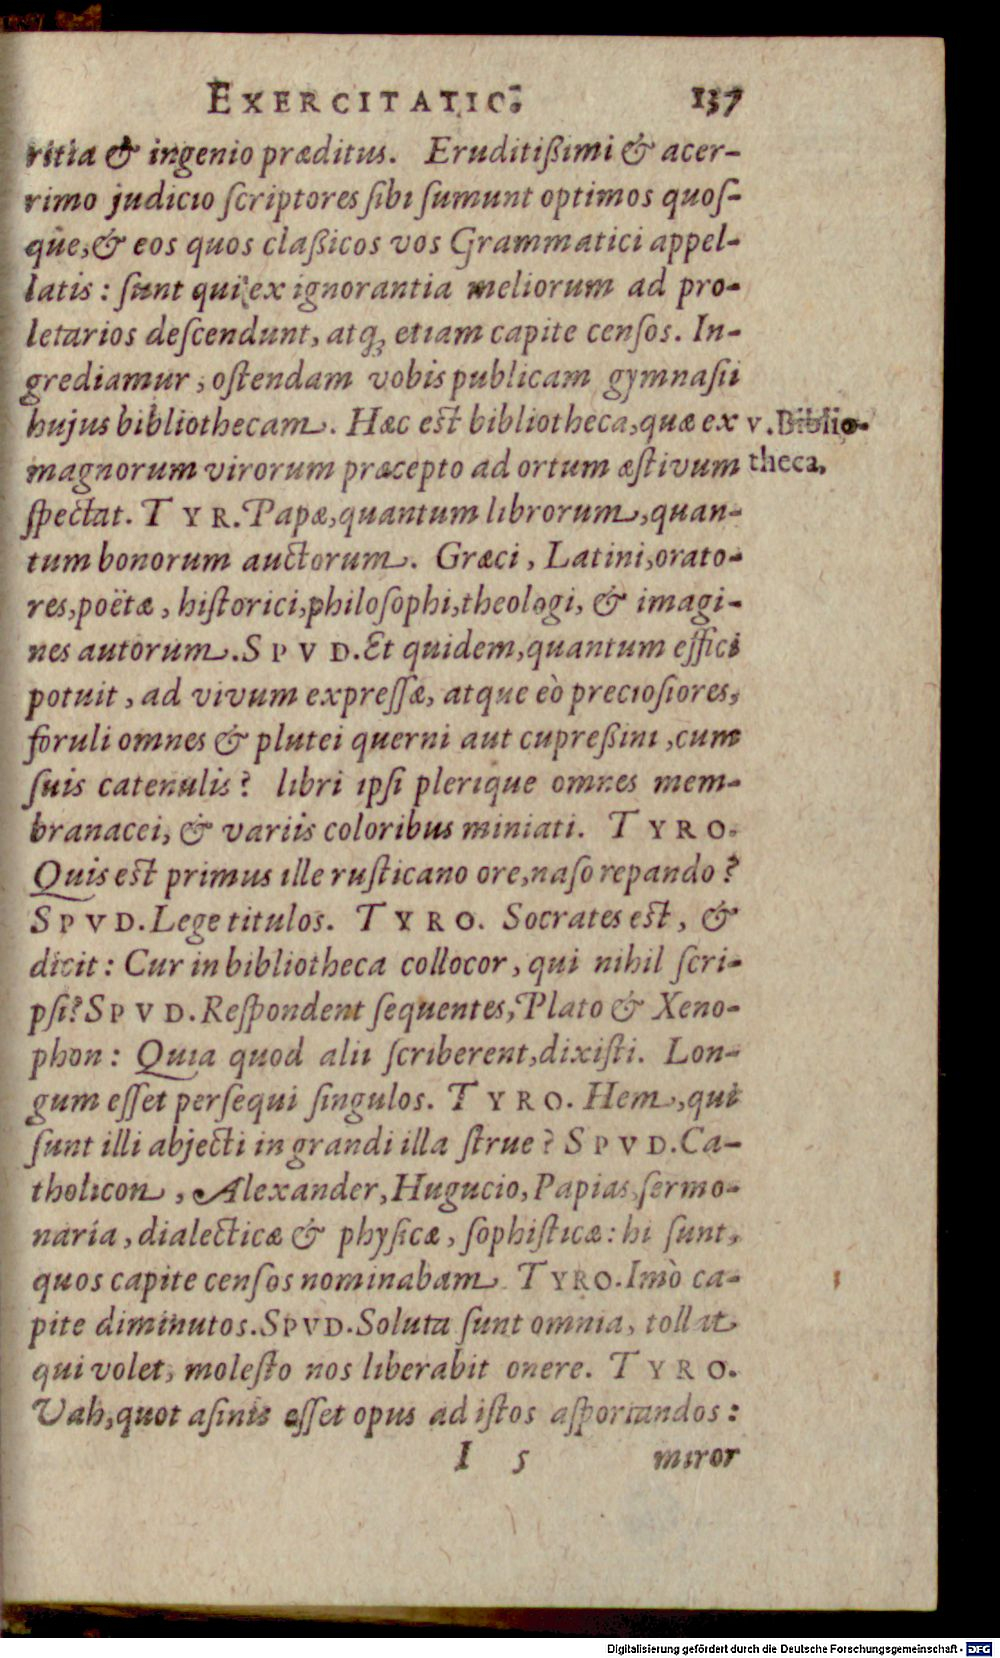 EXERCITATIO. 137
ritia & ingenio præditus. Eruditißimi & acer-
rimo judicio ſcriptores ſibi ſumunt optimos quoſ-
que, & eos quos claßicos vos Grammatici appel-
latis: ſunt qui ex ignorantia meliorum ad pro-
letarios deſcendunt, atq; etiam capite cenſos. In-
grediamur, oſtendam vobis publicam gymnaſii
hujus bibliothecam. Hæc eſt bibliotheca, quæ ex
V. Biblio-
magnorum virorum præcepto ad ortum æſtivum
theca.
ſpectat. TYR. Papæ, quantum librorum, quan-
tum bonorum auctorum. Græci, Latini, orato-
res, poëtæ, hiſtorici, philoſophi, theologi, & imagi-
nes autorum. SPVD. Et quidem, quantum effici
potuit, ad vivum expreſſæ, atque eò precioſiores,
foruli omnes & plutei querni aut cupreßini, cum
ſuis catenulis? libri ipſi plerique omnes mem-
branacei, & variis coloribus miniati. TYRO.
Quis eſt primus ille ruſticano ore, naſo repando?
SPVD. Lege titulos. TYRO. Socrates eſt, &
dicit: Cur in bibliotheca collocor, qui nihil ſcri-
pſi? SPVD. Reſpondent ſequentes, Plato & Xeno-
phon: Quia quod alii ſcriberent, dixiſti. Lon-
gum eſſet perſequi ſingulos. TYRO. Hem, qui
ſunt illi abjecti in grandi illa ſtrue? SPVD. Ca-
tholicon, Alexander, Hugucio, Papias, ſermo-
naria, dialecticæ & phyſicæ, ſophiſticæ: hi ſunt,
quos capite cenſos nominabam. TYRO. Imò ca-
pite diminutos. SPVD. Soluta ſunt omnia, tollat
qui volet, moleſto nos liberabit onere. TYRO.
Vah, quot aſinis eſſet opus ad iſtos aſportandos:
I 5 miror
Digitalisierung gefördert durch die Deutsche Forschungsgemeinschaft - DFG